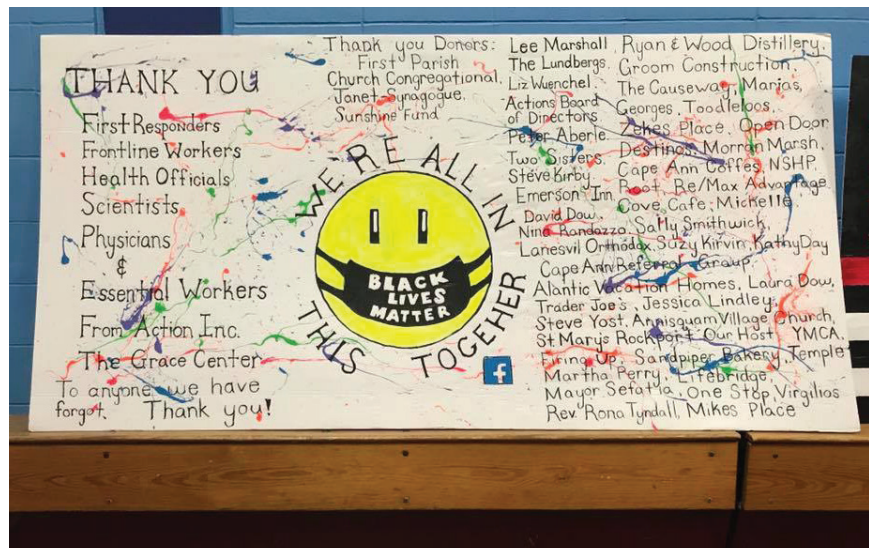 THANK YOU
First Responders
Frontline Workers
Health Officials
Scientists
Physicians
&
Essential Workers
From Action Inc.
The Grace Center
To anyone we have
forgot. Thank you!
Thank you Donors:
First Parish
Church Congregational,
Janet-Synagogue,
Sunshine Fund
WE'RE ALL IN
THIS TOGETHER
BLACK
LIVES
MATTER
f
Lee Marshall, Ryan & Wood Distillery,
The Lundbergs, Groom Construction,
Liz Wuenchel, The Causeway, Marias,
Actions Board Georges, Toodleloos,
of Directors Zekes Place, Open Door
Peter Aberle, Destinos, Morran Marsh,
Two Sisters, Cape Ann Coffes, NSHP
Steve Kirby, Root, Re/Max Advantage
Emerson Inn, Cove Cafe, Michelle,
David Dow, Sally Smithwick,
Nina Randazzo,
Lanesvil Orthodox, Suzy Kirvin, Kathy Day
Cape Ann Referral Group,
Alantic Vacation Homes, Laura Dow,
Trader Joe's, Jessica Lindley,
Steve Yost, Annisquam Village Church,
St Marys Rockport, Our Host YMCA,
Firing Up, Sandpiper Bakery, Temple
Martha Perry, Lifebridge,
Mayor Sefatia, One Stop, Virgilios
Rev. Rona Tyndall, Mikes Place